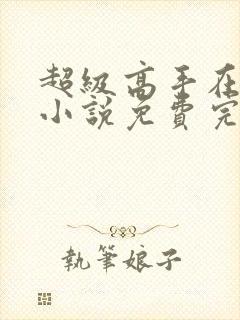 超級高手在
小說免費完
執筆娘子